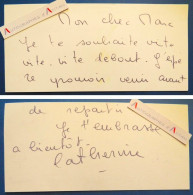 Mon cher Marc
Je te souhaite vite
vite, vite debout. J'espère
te pouvoir venir avant
de repartir
Je t'embrasse
à bientôt.
Catherine